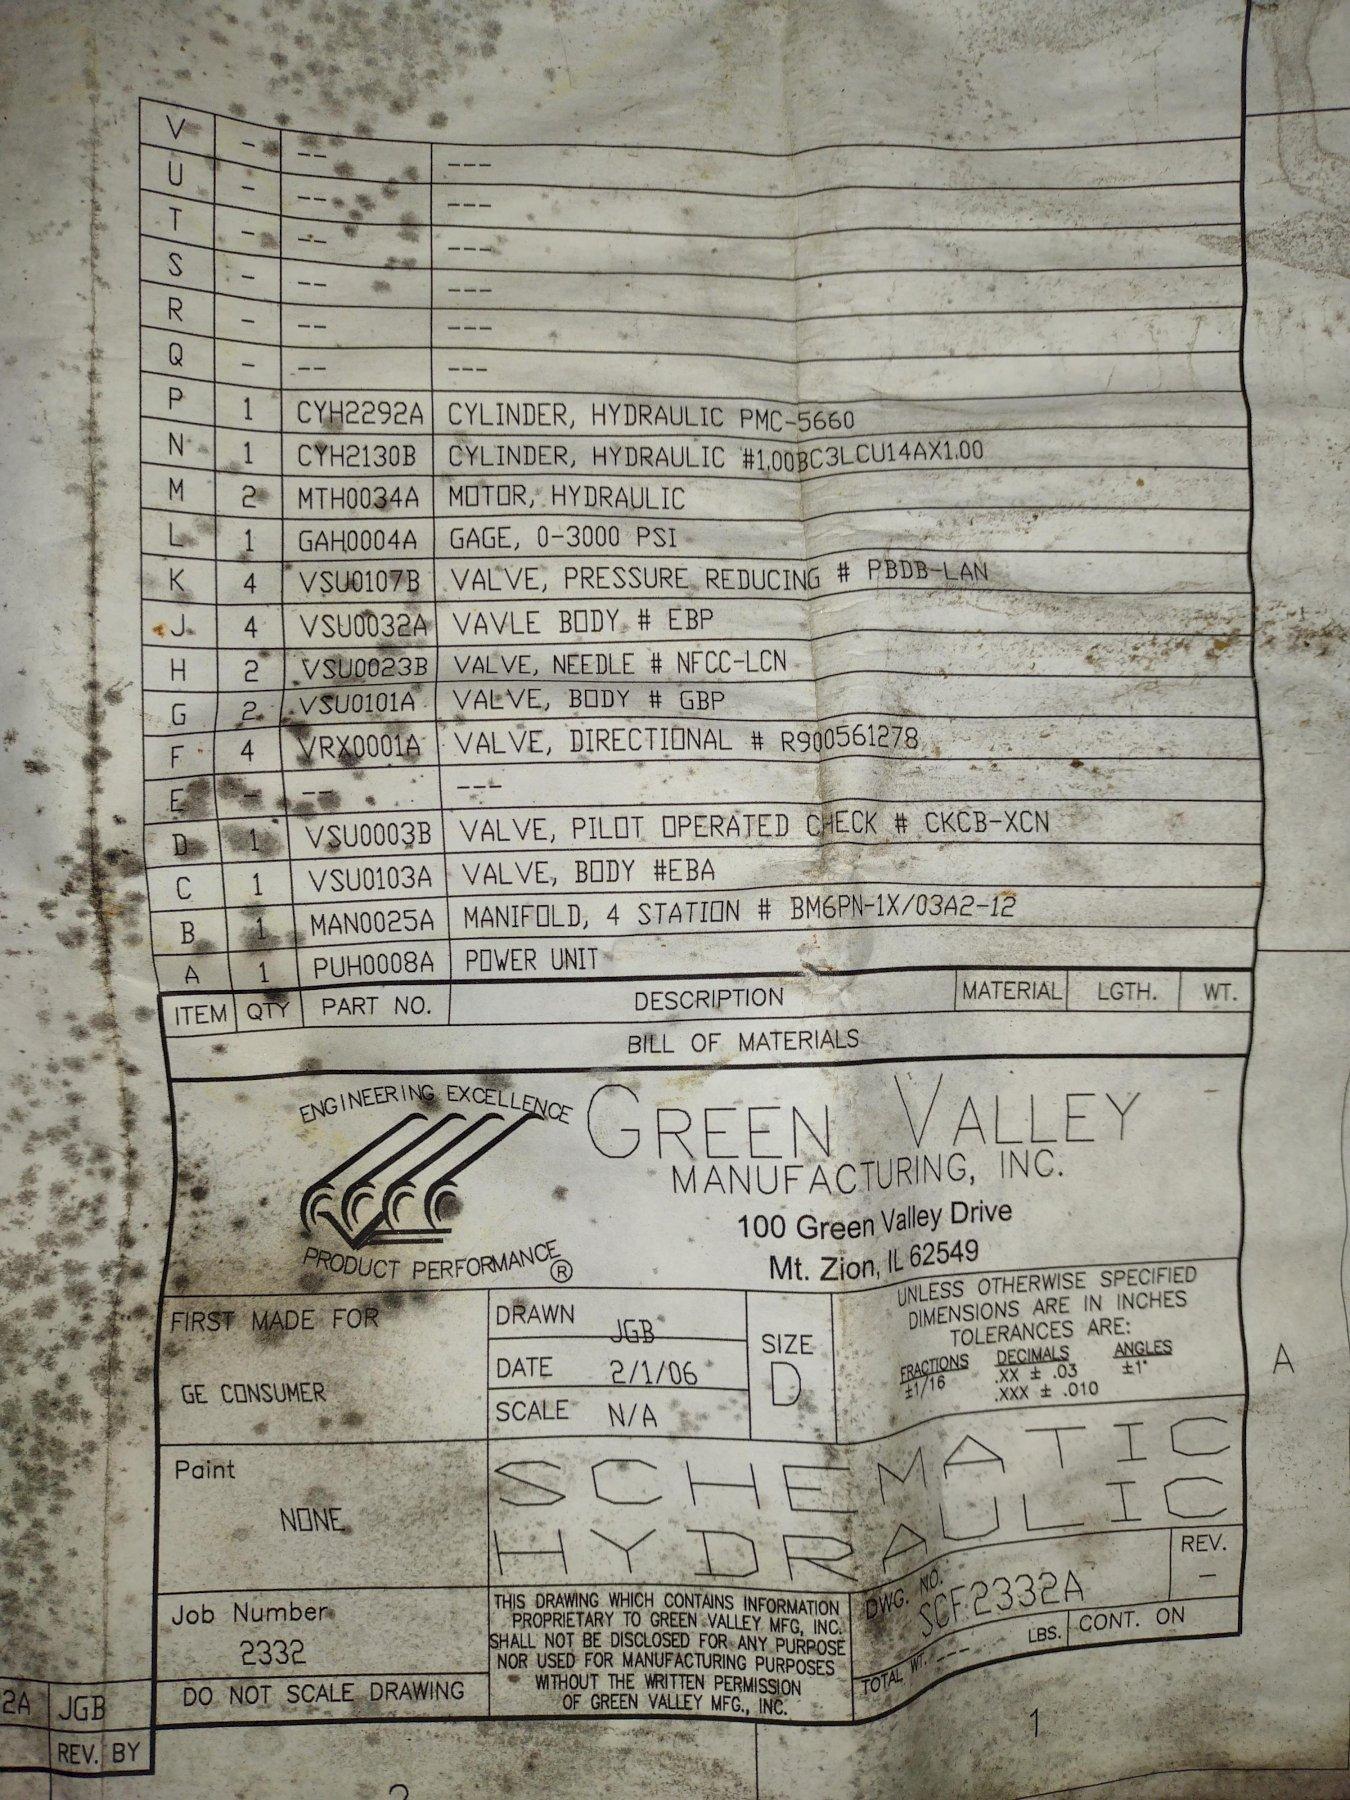 V - -- ---
U - -- ---
T - -- ---
S - -- ---
R - -- ---
Q - -- ---
P 1 CYH2292A CYLINDER, HYDRAULIC PMC-5660
N 1 CYH2130B CYLINDER, HYDRAULIC #1.00BC3LCU14AX1.00
M 2 MTH0034A MOTOR, HYDRAULIC
L 1 GAH0004A GAGE, 0-3000 PSI
K 4 VSU0107B VALVE, PRESSURE REDUCING # PBDB-LAN
J 4 VSU0032A VAVLE BODY # EBP
H 2 VSU0023B VALVE, NEEDLE # NFCC-LCN
G 2 VSU0101A VALVE, BODY # GBP
F 4 VRX0001A VALVE, DIRECTIONAL # R900561278
E - -- ---
D 1 VSU0003B VALVE, PILOT OPERATED CHECK # CKCB-XCN
C 1 VSU0103A VALVE, BODY #EBA
B 1 MAN0025A MANIFOLD, 4 STATION # BM6PN-1X/03A2-12
A 1 PUH0008A POWER UNIT
ITEM QTY PART NO. DESCRIPTION MATERIAL LGTH. WT.
BILL OF MATERIALS
ENGINEERING EXCELLENCE
PRODUCT PERFORMANCE ®
GREEN VALLEY
MANUFACTURING, INC.
100 Green Valley Drive
Mt. Zion, IL 62549
FIRST MADE FOR
GE CONSUMER
DRAWN JGB
DATE 2/1/06
SCALE N/A
SIZE
D
UNLESS OTHERWISE SPECIFIED
DIMENSIONS ARE IN INCHES
TOLERANCES ARE:
FRACTIONS DECIMALS ANGLES
±1/16 .XX ± .03 ±1°
.XXX ± .010
A
Paint
NONE
SCHEMATIC
HYDRAULIC
Job Number
2332
DO NOT SCALE DRAWING
THIS DRAWING WHICH CONTAINS INFORMATION
PROPRIETARY TO GREEN VALLEY MFG, INC.
SHALL NOT BE DISCLOSED FOR ANY PURPOSE
NOR USED FOR MANUFACTURING PURPOSES
WITHOUT THE WRITTEN PERMISSION
OF GREEN VALLEY MFG., INC.
DWG. NO.
SCF2332A
REV.
-
TOTAL WT. --- LBS.
CONT. ON
2A JGB
REV. BY
1
2